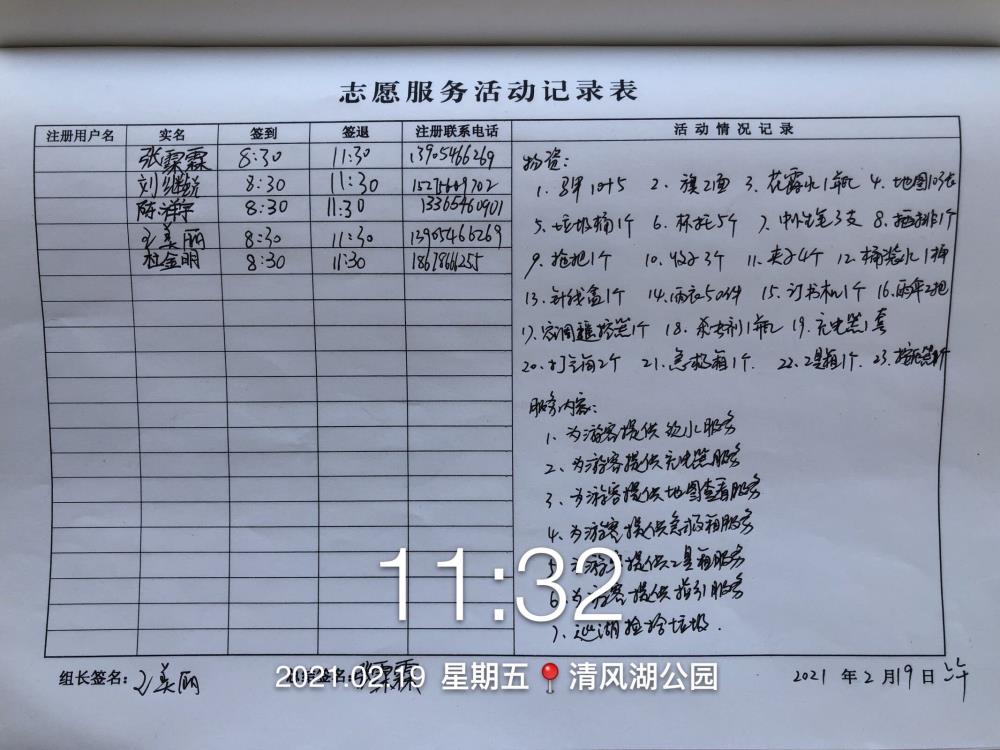 志愿服务活动记录表
注册用户名 实名 签到 签退 注册联系电话 活动情况记录
张霖霖 8:30 11:30 13905466269
刘继锐 8:30 11:30 15275609702
陈祥宇 8:30 11:30 13365460901
王美丽 8:30 11:30 13905466269
杜金明 8:30 11:30
物资:
1、马甲10件 2、旗2面 3、花露水1瓶 4、地图10张
5、垃圾桶1个 6、杯托5个 7、中性笔3支 8、插排1个
9、拖把1个 10、 3个 11、夹子4个 12、桶装水1桶
13、针线盒1个 14、雨衣50件 15、订书机1个 16、雨伞2把
17、空调遥控器1个 18、 1瓶 19、充电器1套
20、打气筒2个 21、急救箱1个 22、工具箱1个 23、
服务内容:
1、为游客提供饮水服务
2、为游客提供充电器服务
3、为游客提供地图查看服务
4、为游客提供急救箱服务
5、为游客提供工具箱服务
6、为游客提供指引服务
7、巡湖捡拾垃圾.
11:32
组长签名: 王美丽
签名: 张霖霖
2021.02.19 星期五 清风湖公园
2021 年 2 月 19 日 上午